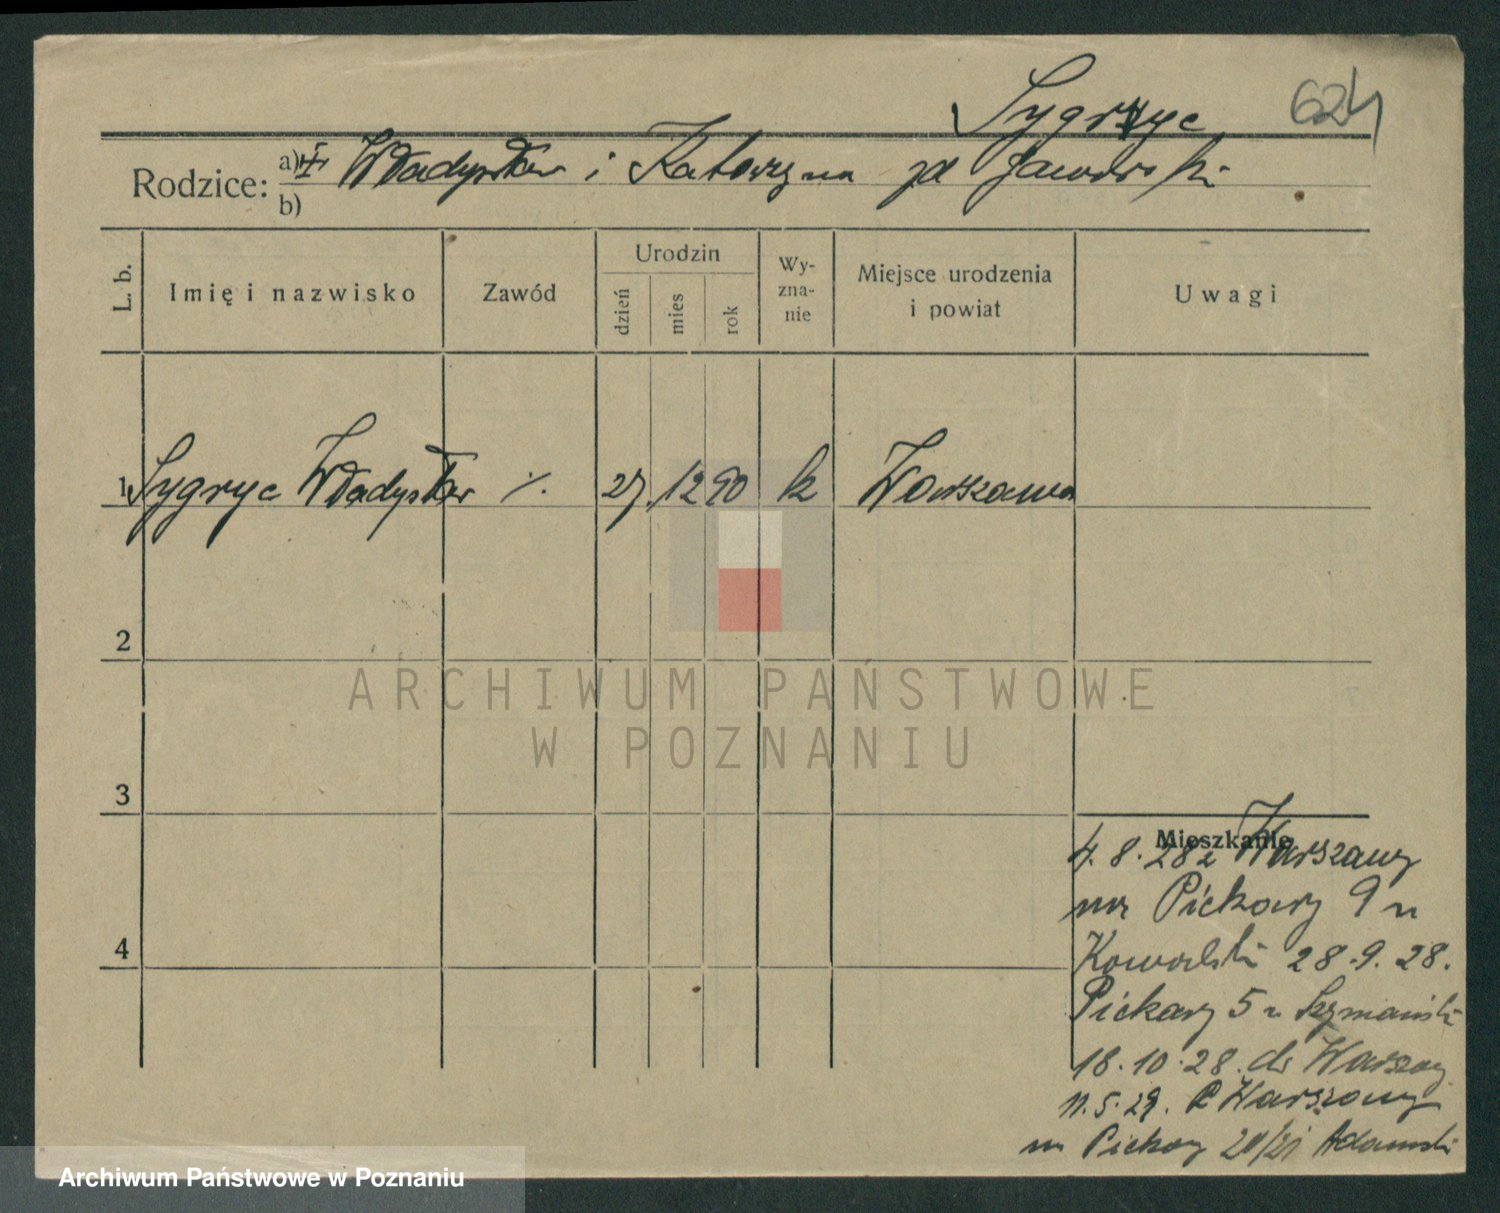 Sygryc 624
Rodzice: a) Władysław i Katarzyna zd Jaworski
b)
L. b. Imię i nazwisko Zawód Urodzin dzień mies rok Wy-zna-nie Miejsce urodzenia i powiat Uwagi
1 Sygryc Władysław ./. 27. 12 90 k Warszawa
2
3
Mieszkanie
4. 8. 28 z Warszawy
na Piekary 9 u
4
Kowalski 28.9.28.
Piekary 5 u Szymański
18.10.28. do Warszawy
11.5.29. z Warszawy
na Piekary 20/21 Adamski
ARCHIWUM PAŃSTWOWE
W POZNANIU
Archiwum Państwowe w Poznaniu